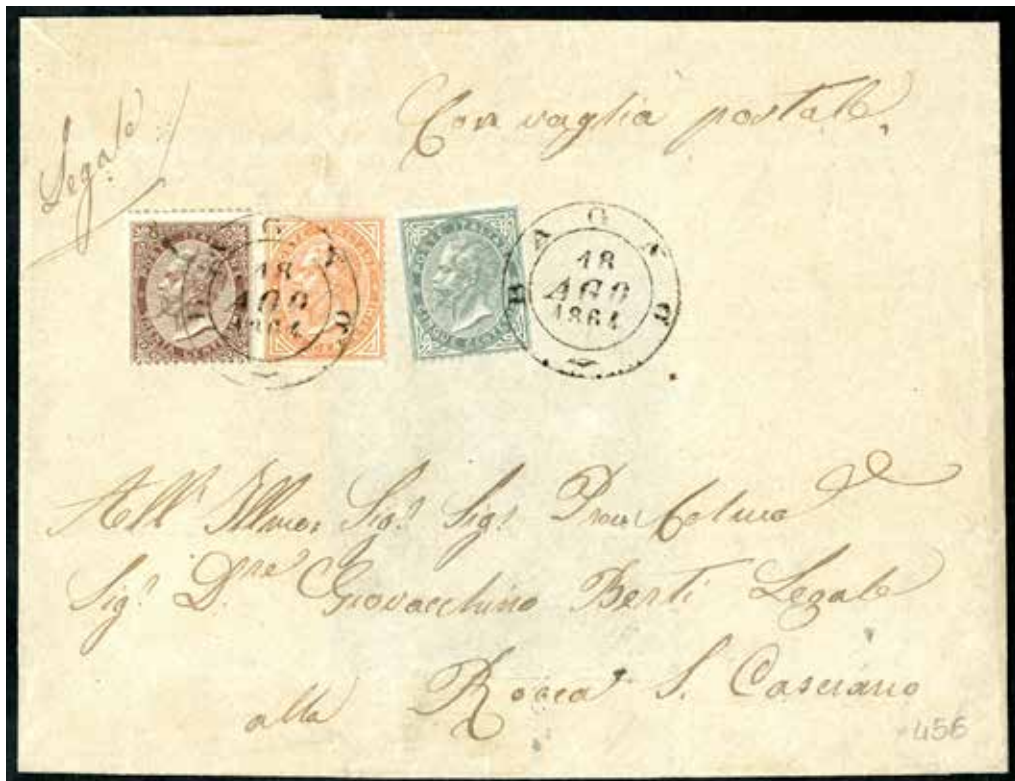 Legale
Con vaglia postale.
BAGNO
18
AGO
1864
BAGNO
18
AGO
1864
All' Illmo: Sig.r Sig.r Pron Colmo
Sig.r D.re Giovacchino Berti Legale
alla Rocca S. Casciano
456